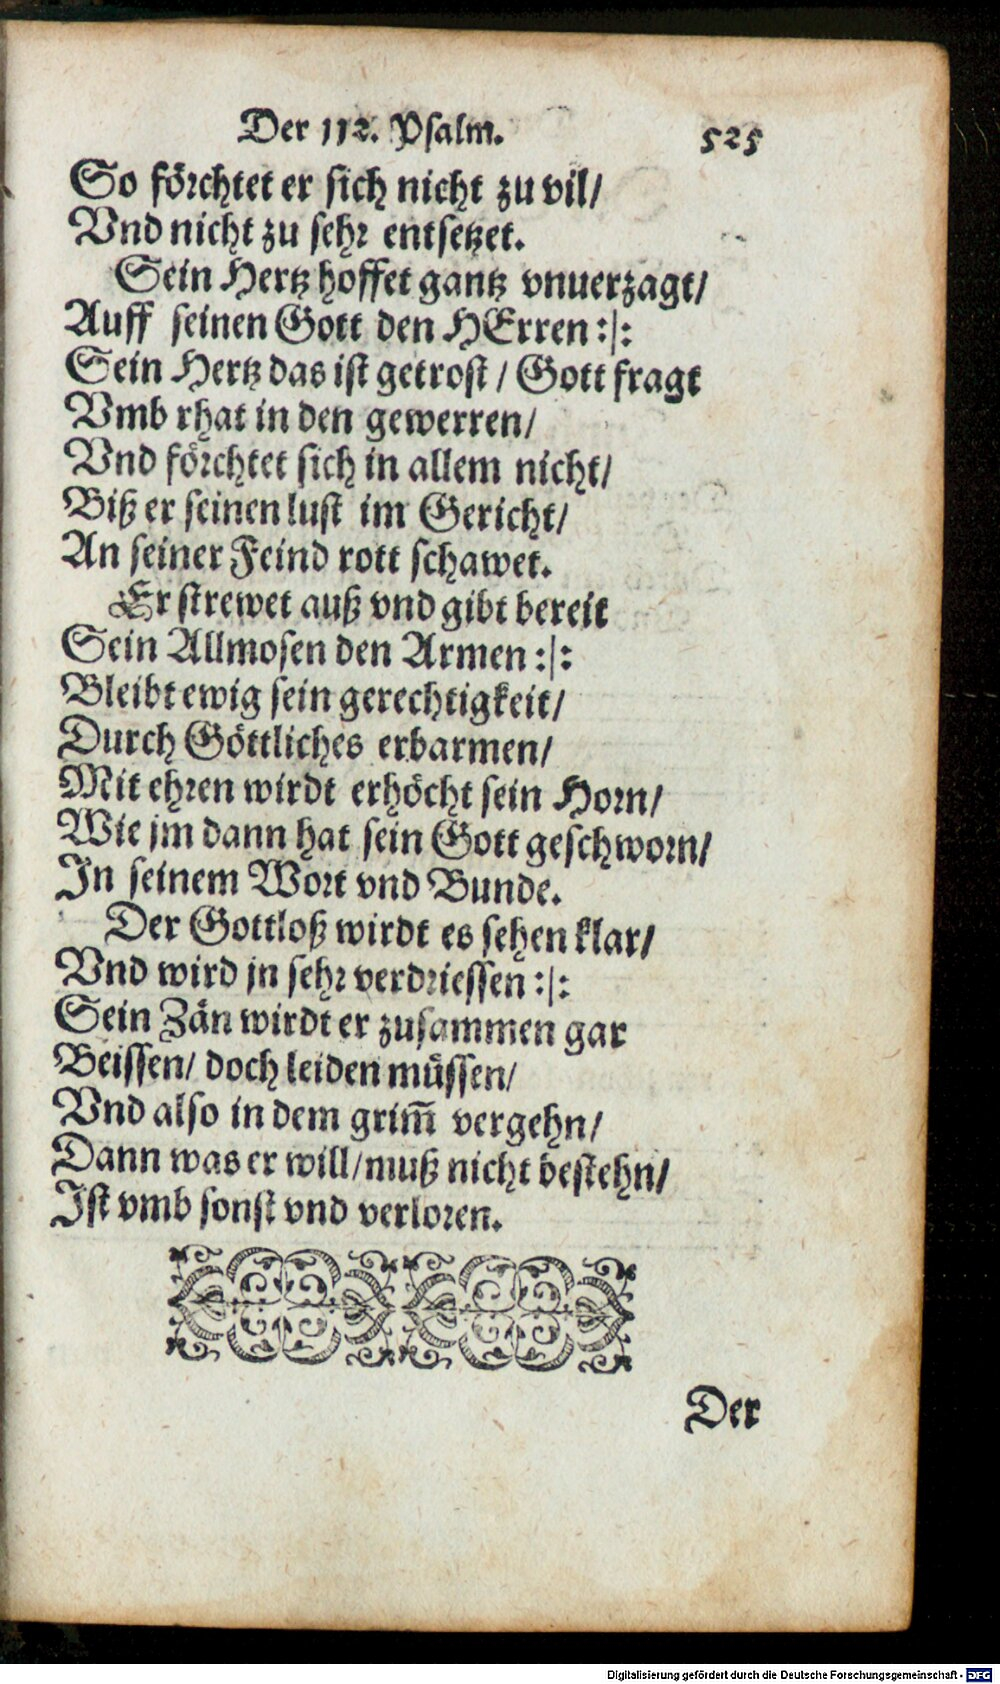 Der 112. Psalm. 525
So förchtet er sich nicht zu vil/
Vnd nicht zu sehr entsetzet.
Sein Hertz hoffet gantz vnuerzagt/
Auff seinen Gott den HErren :|:
Sein Hertz das ist getrost / Gott fragt
Vmb rhat in den gewerren/
Vnd förchtet sich in allem nicht/
Biß er seinen lust im Gericht/
An seiner Feind rott schawet.
Er strewet auß vnd gibt bereit
Sein Allmosen den Armen :|:
Bleibt ewig sein gerechtigkeit/
Durch Göttliches erbarmen/
Mit ehren wirdt erhöcht sein Horn/
Wie jm dann hat sein Gott geschworn/
In seinem Wort vnd Bunde.
Der Gottloß wirdt es sehen klar/
Vnd wird jn sehr verdriessen :|:
Sein Zän wirdt er zusammen gar
Beissen/ doch leiden müssen/
Vnd also in dem grim̃ vergehn/
Dann was er will/ muß nicht bestehn/
Ist vmb sonst vnd verloren.
Der
Digitalisierung gefördert durch die Deutsche Forschungsgemeinschaft - DFG